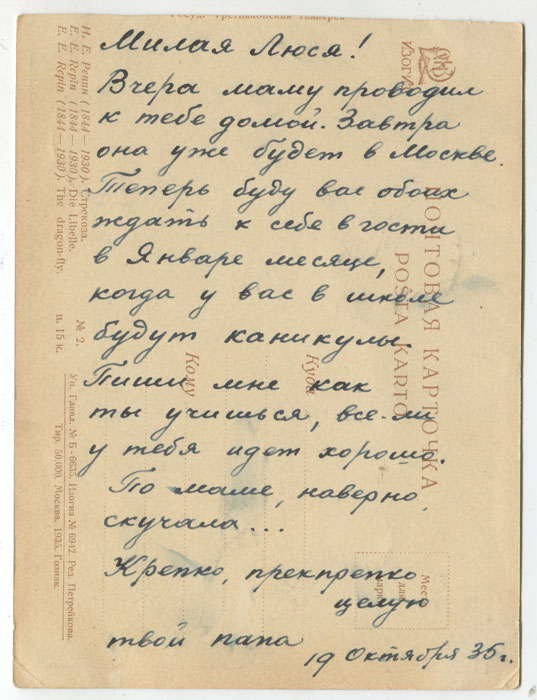 Милая Люся!
Вчера маму проводил
к тебе домой. Завтра
она уже будет в Москве.
Теперь буду вас обоих
ждать к себе в гости
в Январе месяце,
когда у вас в школе
будут каникулы.
Пиши мне как
ты учишься, все-ли
у тебя идет хорошо.
По маме, наверно,
скучала...
Крепко, прекрепко
целую
твой папа
19 Октября 35 г.
ИЗОГИЗ
ПОЧТОВАЯ КАРТОЧКА
POŜTA KARTO
Куда
Кому
Место
для
марки
И. Е. Репин (1844 — 1930). Стрекоза.
E. E. Repin (1844 — 1930). Die Libelle.
E. E. Repin (1844 — 1930). The dragon-fly.
№ 2.
ц. 15 к.
Уп. Главл. № Б - 6635. Изогиз № 6942. Ред. Петрейкова.
Тир. 50.000. Москва. 1935. Гознак.